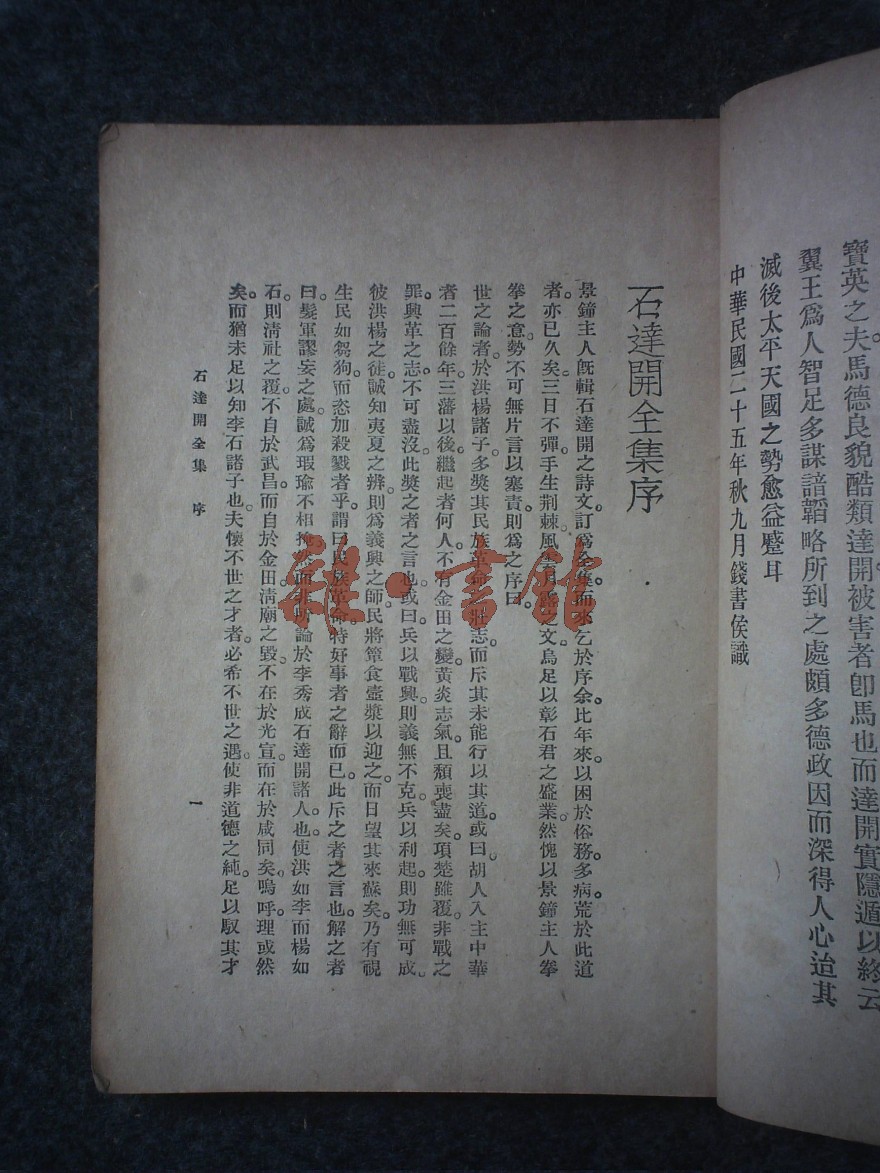 寶英之夫馬德良貌酷類達開被害者卽馬也而達開實隱遁以終云
翼王爲人智足多謀諳韜略所到之處頗多德政因而深得人心迨其
滅後太平天國之勢愈益蹙耳
中華民國二十五年秋九月錢書侯識
石達開全集序
景鐘主人旣輯石達開之詩文訂爲全集而來乞於序余。比年來以困於俗務。多病荒於此道
者。亦已久矣。三日不彈。手生荆棘。風之文。烏足以彰石君之盛業。然愧以景鐘主人拳
拳之意。勢不可無片言以塞責。則爲之序曰。
世之論者。於洪楊諸子。多獎其民族革命壯志。而斥其未能行以其道。或曰。胡人入主中華
者二百餘年。三藩以後。繼起者何人。不有金田之變。黃炎志氣。且頹喪盡矣。項楚雖覆。非戰之
罪。興革之志。不可盡沒。此獎之者之言也。或曰。兵以戰興。則義無不克。兵以利起。則功無可成。
彼洪楊之徒。誠知夷夏之辨。則爲義興之師。民將簞食壺漿以迎之。而日望其來蘇矣。乃有視
生民如芻狗。而恣加殺戮者乎。謂曰民族革命。特好事者之辭而已。此斥之者之言也。解之者
曰。髮軍謬妄之處。誠爲瑕瑜不相掩。然而非所論於李秀成石達開諸人也。使洪如李而楊如
石。則淸社之覆。不自於武昌。而自於金田。淸廟之毀。不在於光宣。而在於咸同矣。嗚呼。理或然
矣。而猶未足以知李石諸子也。夫懷不世之才者。必希不世之遇。使非道德之純。足以馭其才
石達開全集 序
一
雜·書館